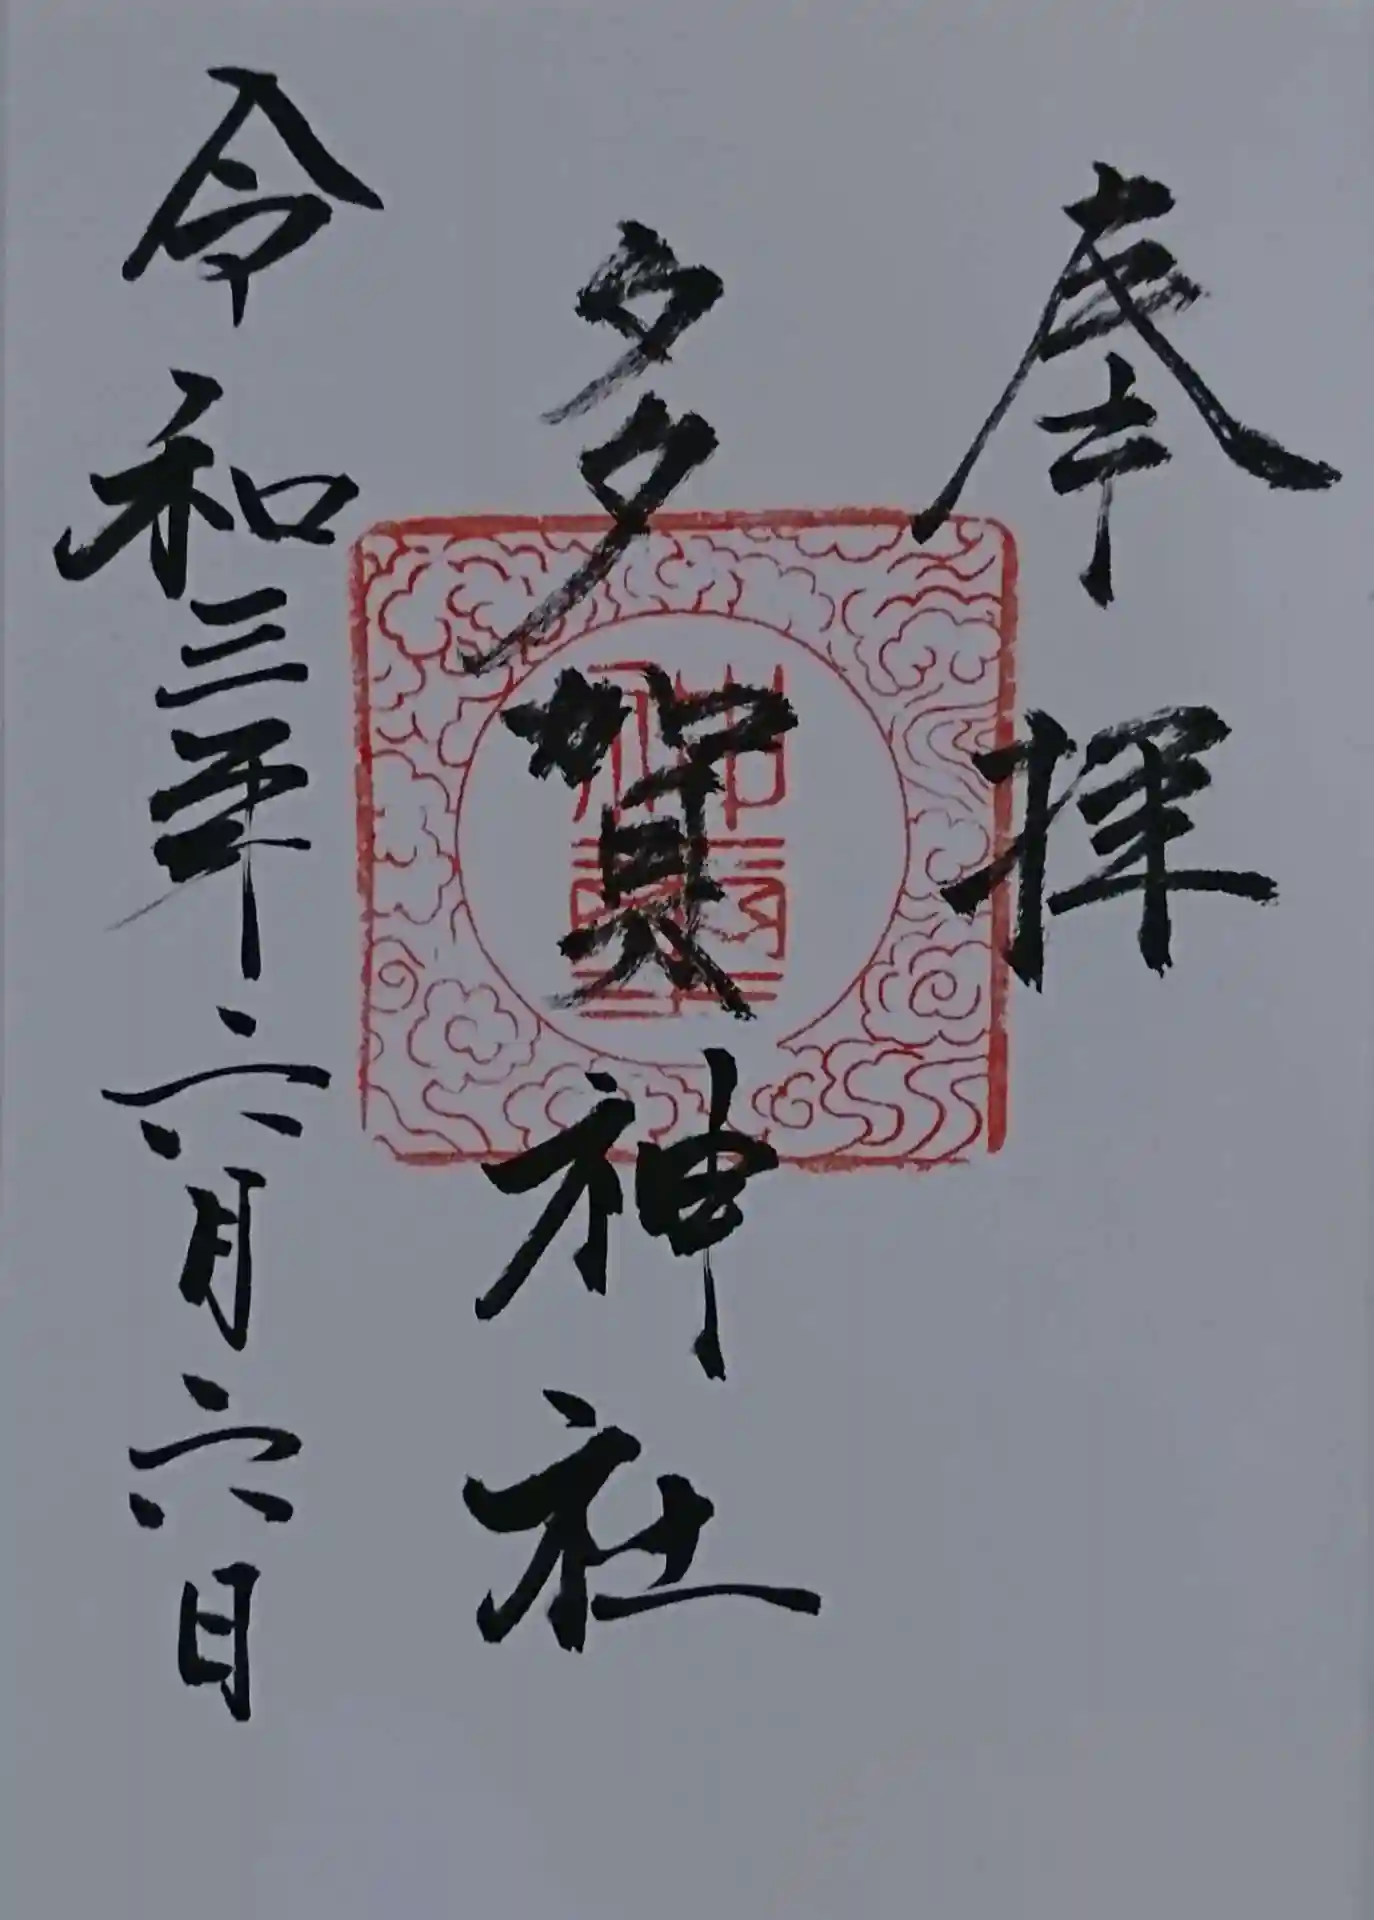 奉拝
多賀神社
令和三年六月六日